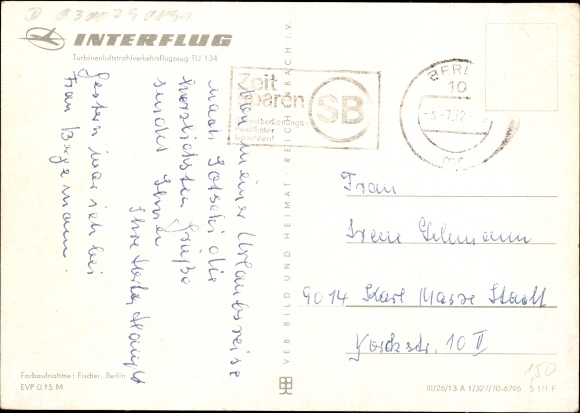 D 030029 0891
INTERFLUG
Turbinenluftstrahlverkehrsflugzeug TU 134
Zeit
sparen
SB
Selbstbedienungs-
Postämter
benutzen!
BERLIN
10
-3.-7.72
Von meiner Urlaubsreise
nach Sotschi die
herzlichsten Grüße
sendet Ihnen
Ihre
Gestern war ich bei
Frau
Frau
Irene
9014 Karl Marx Stadt
Yorckstr. 10 II
VEB BILD UND HEIMAT · REICHENBACH i. V.
Farbaufnahme: Fischer, Berlin
EVP 0,15 M
III/26/13 A 1/327/70-6796 S 1/1 F
1,50